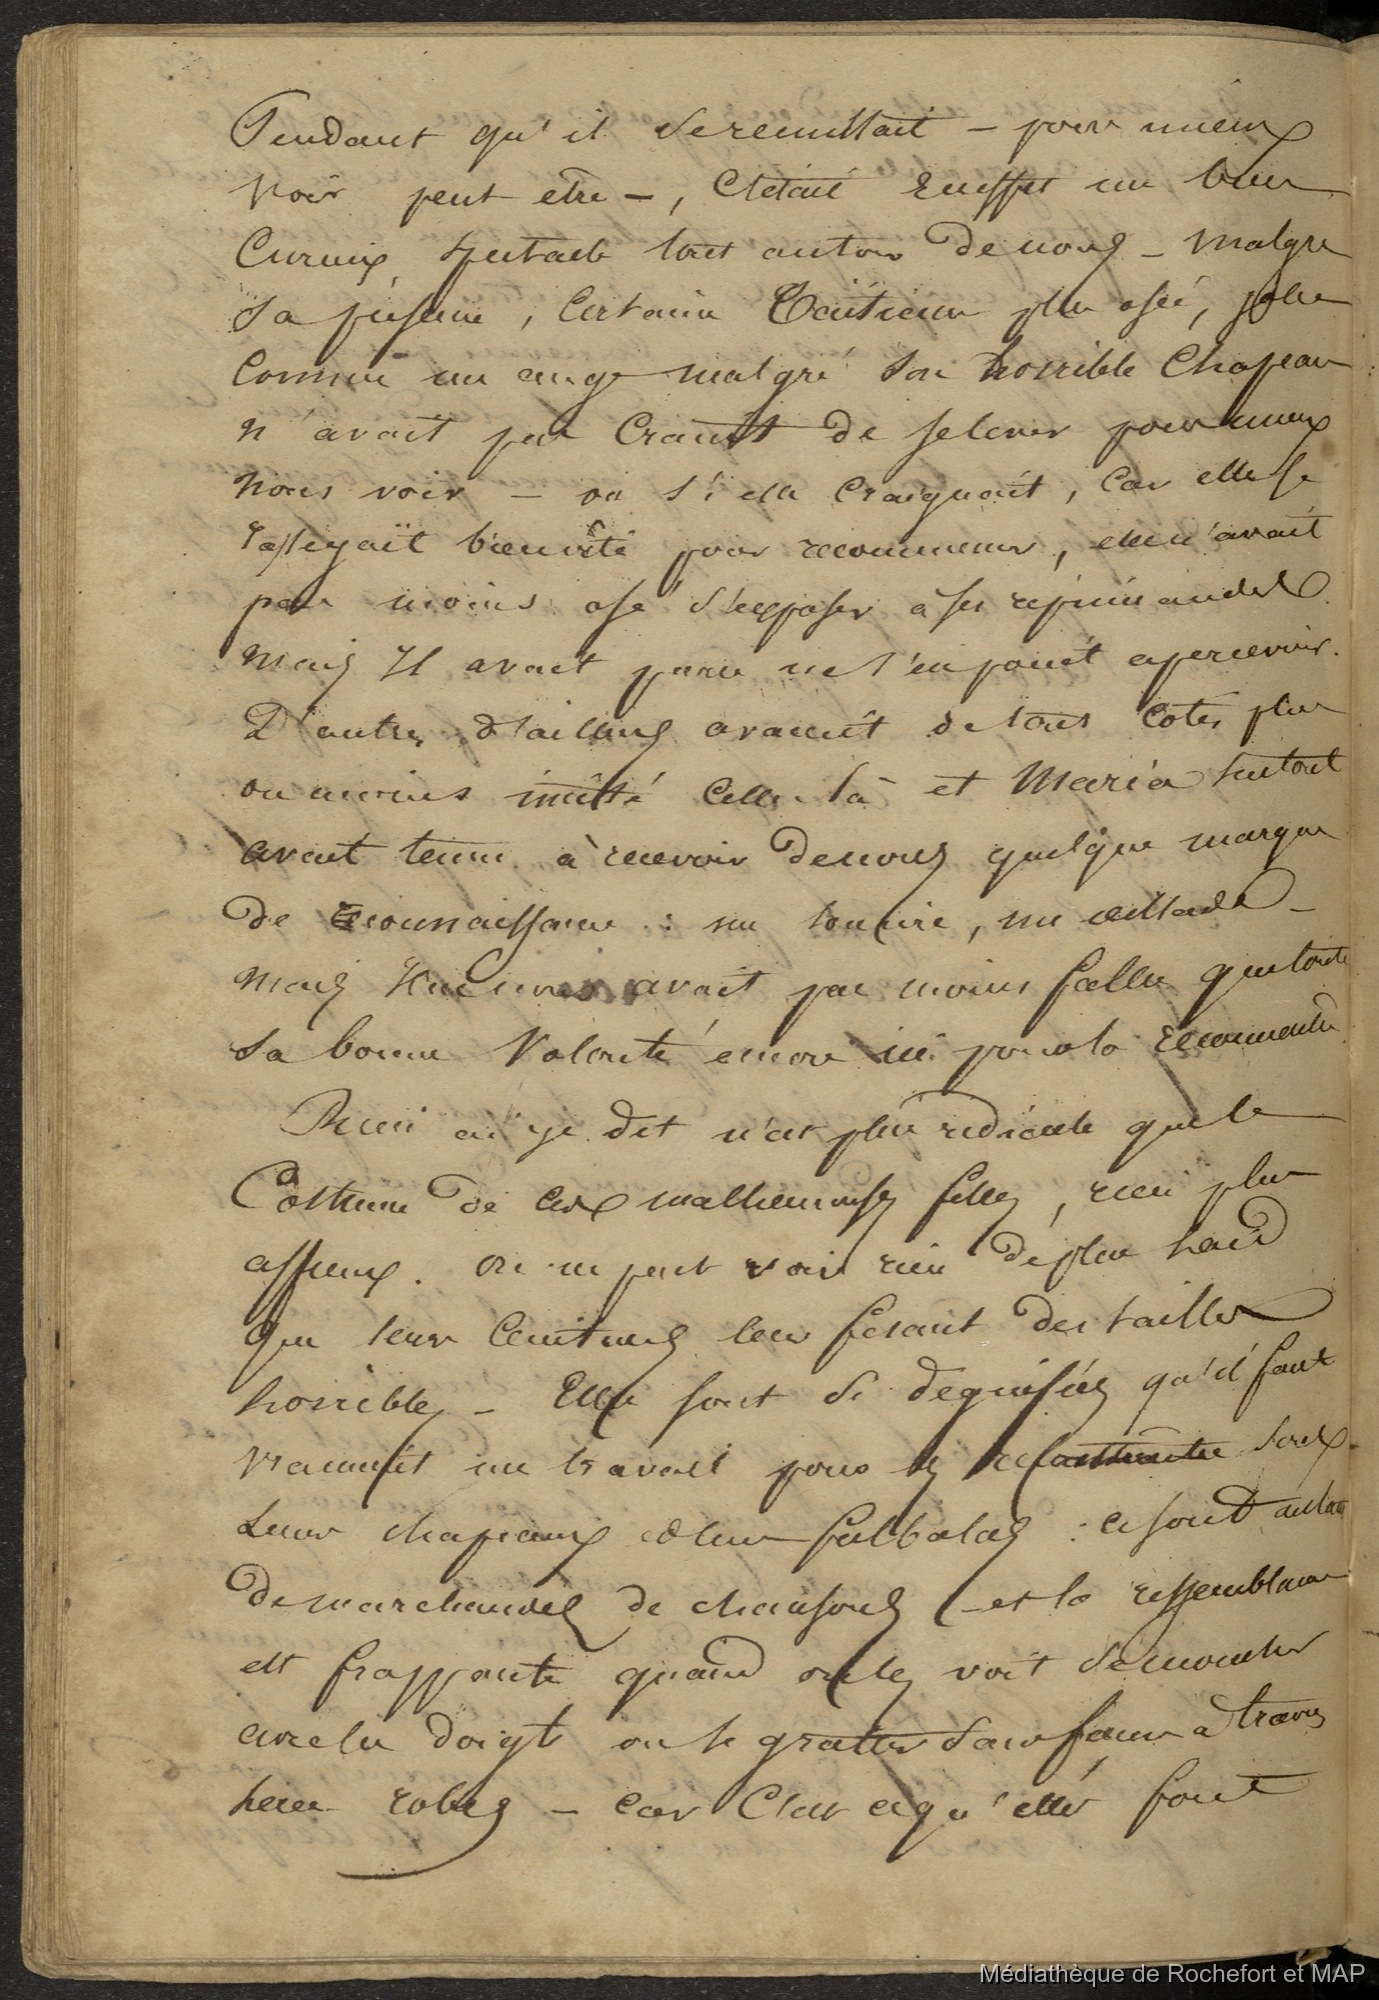 Pendant qu'il se recueillait – pour mieux
voir peut être –, C'était en effet un bien
Curieux spectacle tout autour de nous – Malgré
Sa présence, Certaine plus osée, jolie
Comme un ange malgré son horrible Chapeau
n'avait pas Craint de se lever pour mieux
nous voir – ou si elle Craignait, Car elle se
rasseyait bien vite pour recommencer, elle n'avait
pas moins osé s'exposer à ses réprimandes
Mais Il avait paru ne s'en point apercevoir.
D'autres d'ailleurs avaient de tous Cotés plus
ou moins imité Celle là et Maria surtout
avait tenu à recevoir de nous quelque marque
de reconnaissance : un sourire, une œillade –
Mais Il ne nous avait pas moins fallu que toute
Sa bonne Volonté encore ici pour la reconnaitre
Rien ai-je dit n'est plus ridicule que le
Costume de Ces malheureuses filles, rien plus
affreux. On ne peut voir rien de plus laid
que leurs Ceintures leur fesant des tailles
horribles – Elles sont si deguisées qu'il faut
vraiment un travail pour les reconnaitre sous
Leurs chapeaux et leurs falbalas : ce sont autant
de marchandes de chansons – et la ressemblance
est frappante quand on les voit se moucher
avec les doigts ou se gratter sans façon à travers
leurs robes – car C'est ce qu'elles font
Médiathèque de Rochefort et MAP